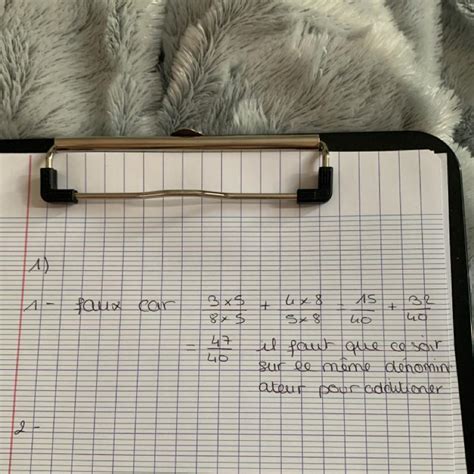 1)
1- faux car 3×5/8×5 + 4×8/5×8 = 15/40 + 32/40
= 47/40 il faut que ce soit
sur le même dénomin-
ateur pour additioner
2-